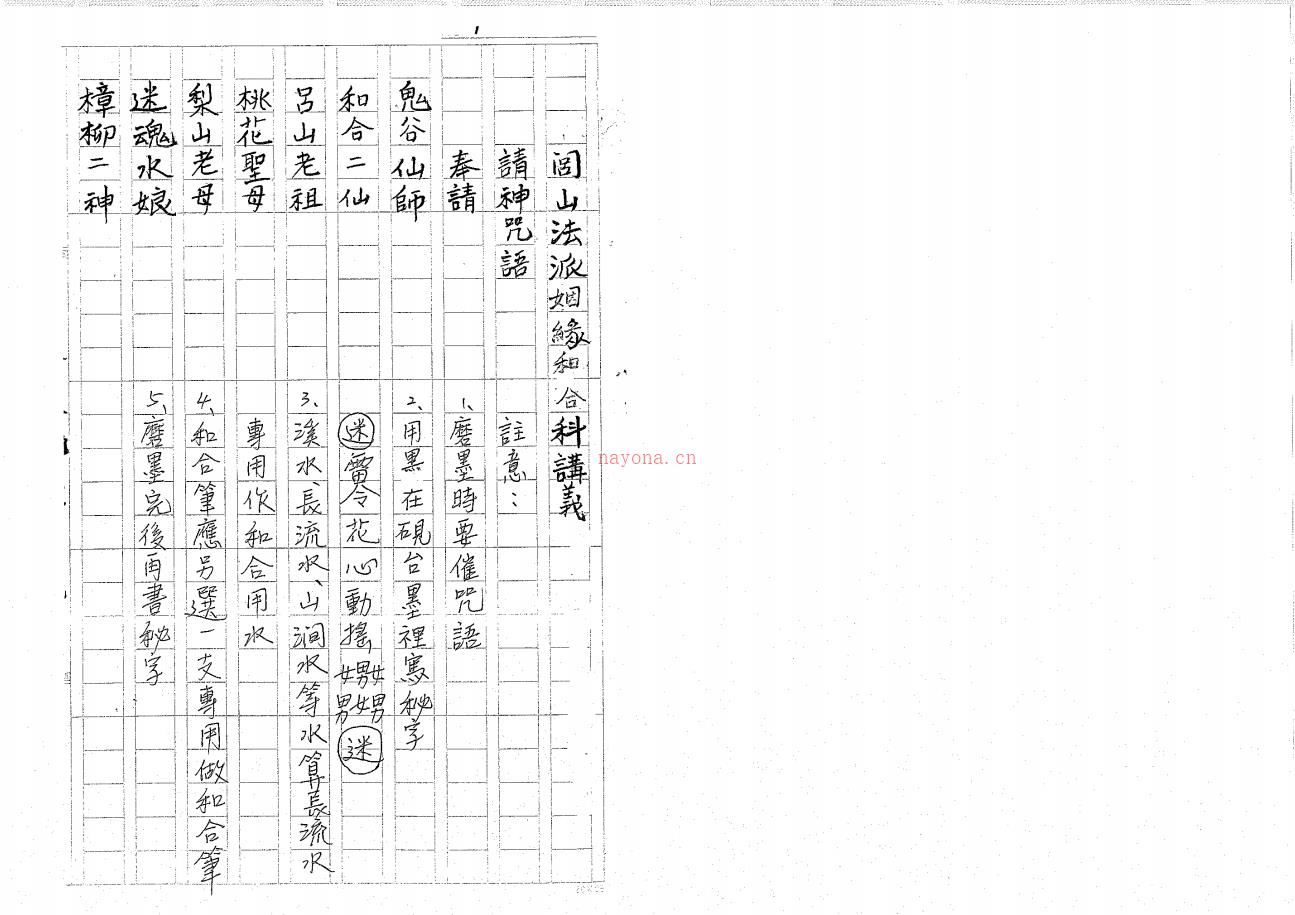 1
閭山法派姻緣和合科講義
請神咒語
奉請
鬼谷仙師
和合二仙
呂山老祖
桃花聖母
梨山老母
迷魂水娘
樟柳二神
註意：
1、磨墨時要催咒語
2、用黑在硯台墨裡寫秘字
迷 花心動搖 迷
3、溪水、長流水、山澗水等水算長流水
專用作和合用水
4、和合筆應另選一支專用做和合筆
5、磨墨完後再書秘字
nayona.cn